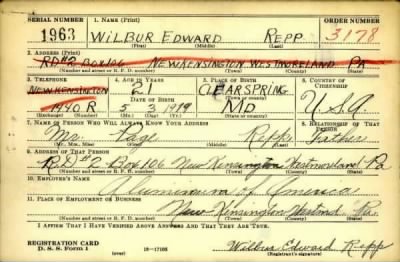 SERIAL NUMBER 1. NAME (Print) ORDER NUMBER
1963 WILBUR EDWARD REPP 3178
(First) (Middle) (Last)
2. ADDRESS (Print)
R.D.#2 BOX 106 NEW KENSINGTON WESTMORELAND PA
(Number and street or R. F. D. number) (Town) (County) (State)
3. TELEPHONE 4. AGE IN YEARS 5. PLACE OF BIRTH 6. COUNTRY OF CITIZENSHIP
NEW KENSINGTON 21 CLEARSPRING
DATE OF BIRTH (Town or county)
1940 R 5 3 1919 MD U.S.A
(Exchange) (Number) (Mo.) (Day) (Yr.) (State or country)
7. NAME OF PERSON WHO WILL ALWAYS KNOW YOUR ADDRESS 8. RELATIONSHIP OF THAT PERSON
Mr. Page Repp Father
(Mr., Mrs., Miss) (First) (Middle) (Last)
9. ADDRESS OF THAT PERSON
R.D. #2 Box 106 New Kensington Westmoreland Pa
(Number and street or R. F. D. number) (Town) (County) (State)
10. EMPLOYER'S NAME
Aluminum of America
11. PLACE OF EMPLOYMENT OR BUSINESS
New Kensington Westmd. Pa.
(Number and street or R. F. D. number) (Town) (County) (State)
I AFFIRM THAT I HAVE VERIFIED ABOVE ANSWERS AND THAT THEY ARE TRUE.
REGISTRATION CARD
D. S. S. Form 1 (over) 16—17105 Wilbur Edward Repp
(Registrant's signature)